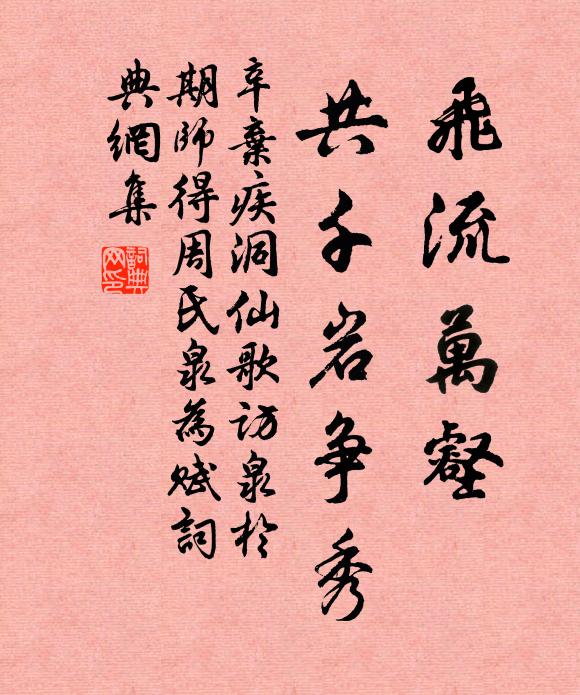 飛流萬壑
共千岩争秀
辛棄疾洞仙歌訪泉於
期師得周氏泉為賦詞
典網集
詞典
网印